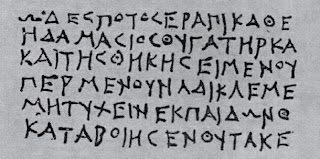 ΩΔΕΣΠΟΤΟΣΕΡΑΠΙΚΑΘΕ
ΗΔΑΜΑΣΙΟΣΘΥΓΑΤΗΡΚΑ
ΚΑΙΤΗΣΘΗΚΗΣΕΙΜΕΝΟΥ
ΠΕΡΜΕΝΟΥΝΑΔΙΚΑΕΜΕ
ΜΗΤΥΧΕΙΝΕΚΠΑΙΔΩΝΘ
ΚΑΤΑΒΟΙΗΣΕΝΘΥΤΑΚΕ